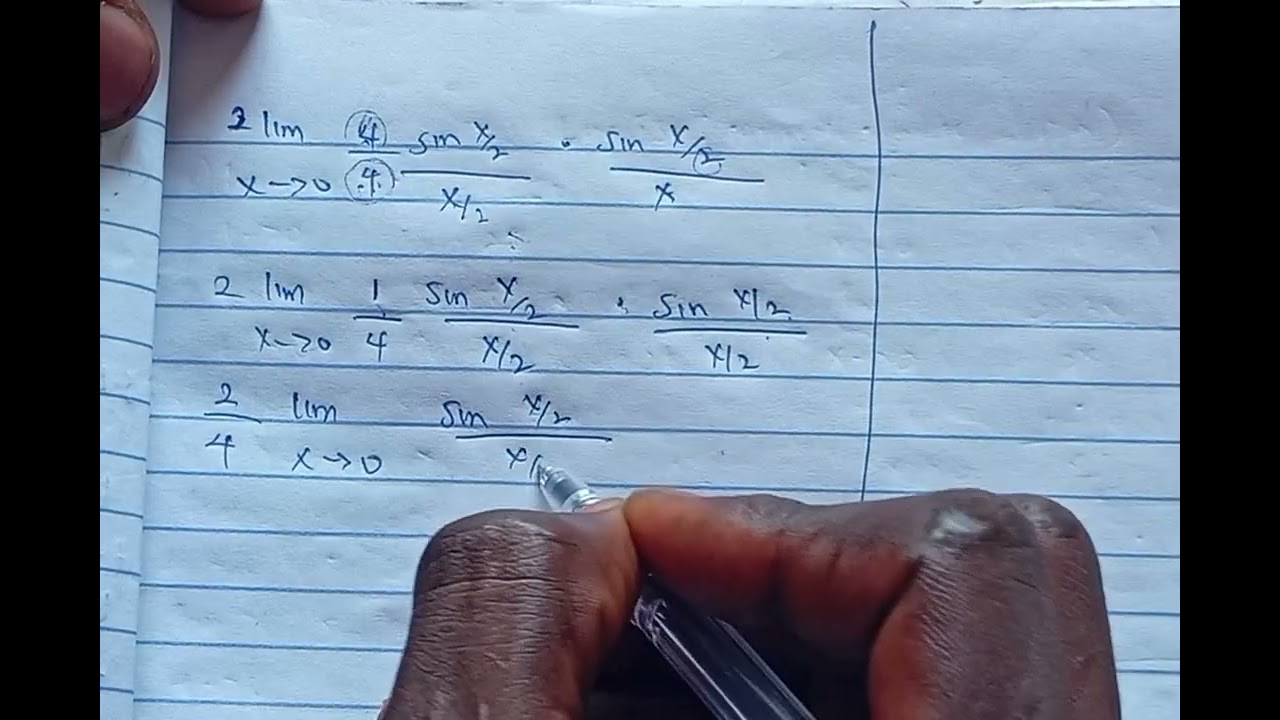 2 lim x→0 4/4 sin x/2 / x/2 · sin x/2 / x
2 lim x→0 1/4 sin x/2 / x/2 · sin x/2 / x/2
2/4 lim x→0 sin x/2 / x/